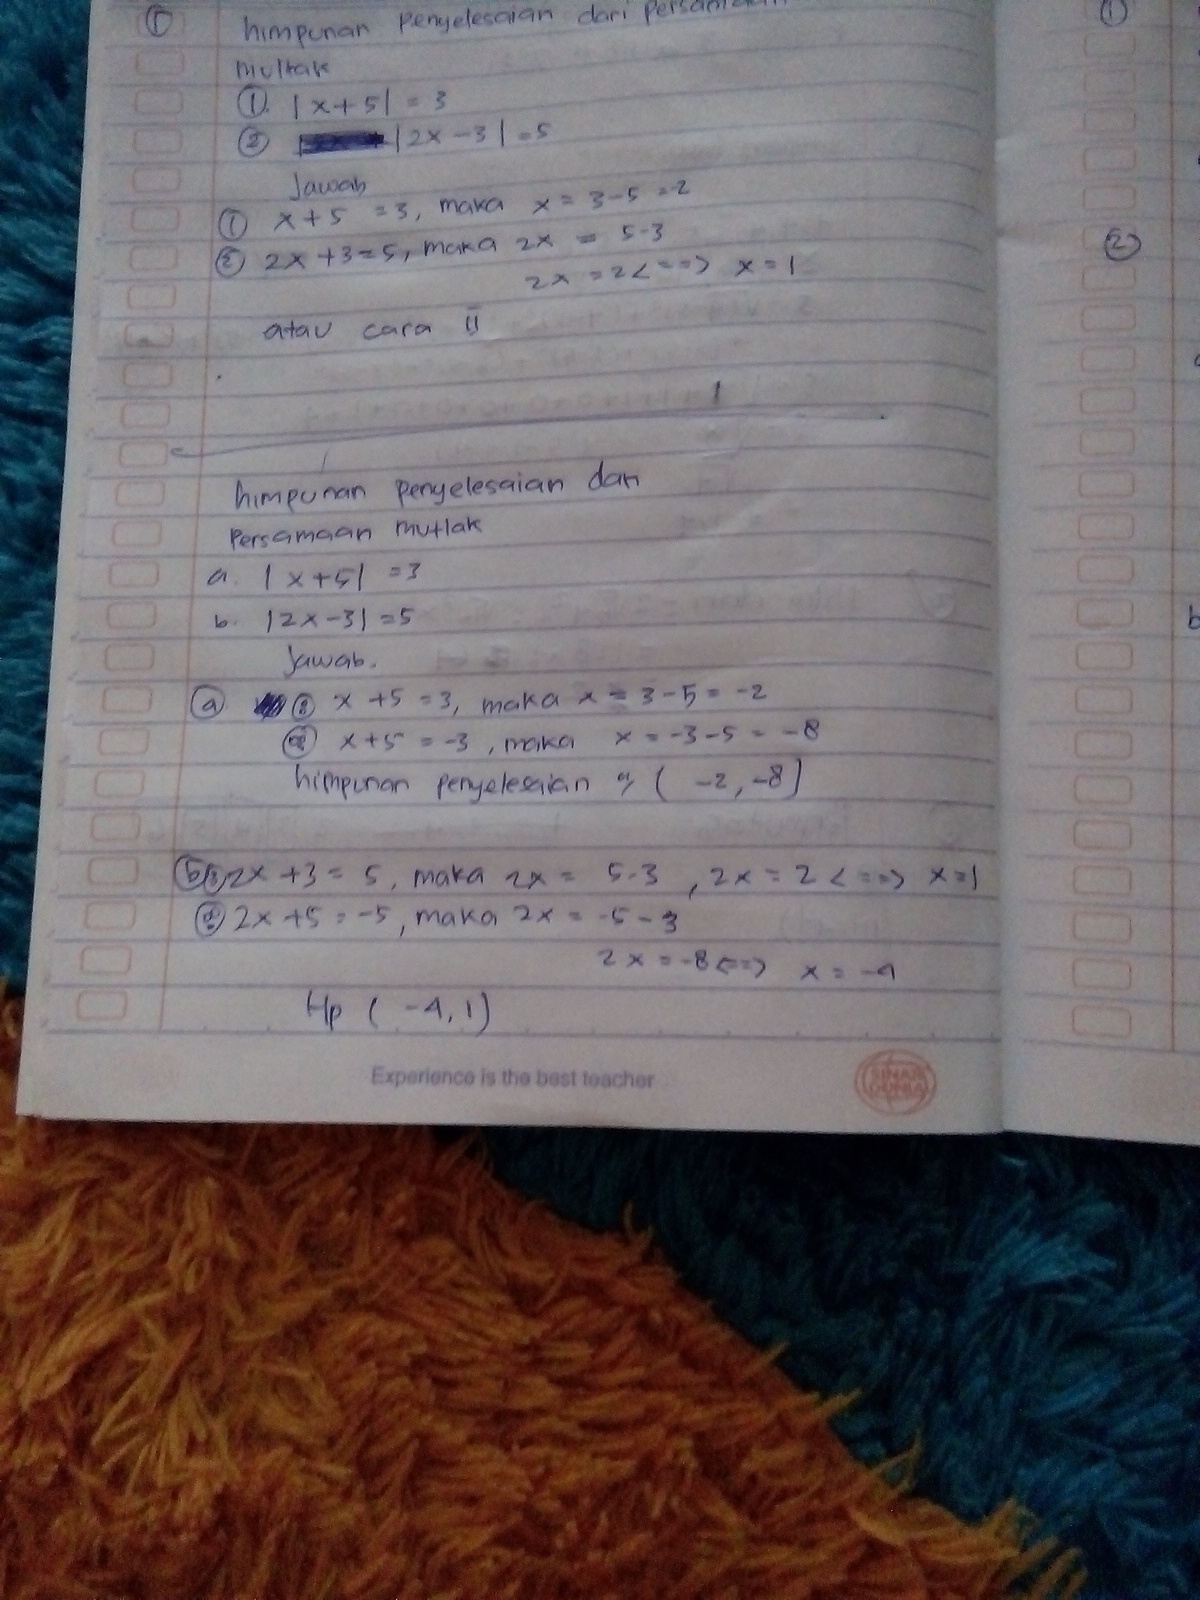 himpunan penyelesaian dari persamaan
multak
① |x+5| = 3
② |2x-3| = 5
Jawab
① x+5 = 3, maka x = 3-5 = -2
② 2x+3=5, maka 2x = 5-3
2x = 2 <==> x = 1
atau cara II
himpunan penyelesaian dari
Persamaan mutlak
a. |x+5| = 3
b. |2x-3| = 5
Jawab.
ⓐ x+5 = 3, maka x = 3-5 = -2
x+5 = -3, maka x = -3-5 = -8
himpunan penyelesaian (-2,-8]
ⓑ 2x+3 = 5, maka 2x = 5-3, 2x = 2 <==> x=1
2x+5 = -5, maka 2x = -5-3
2x = -8 <==> x = -4
Hp (-4,1)
Experience is the best teacher
SINAR
DUNIA
①
②
b